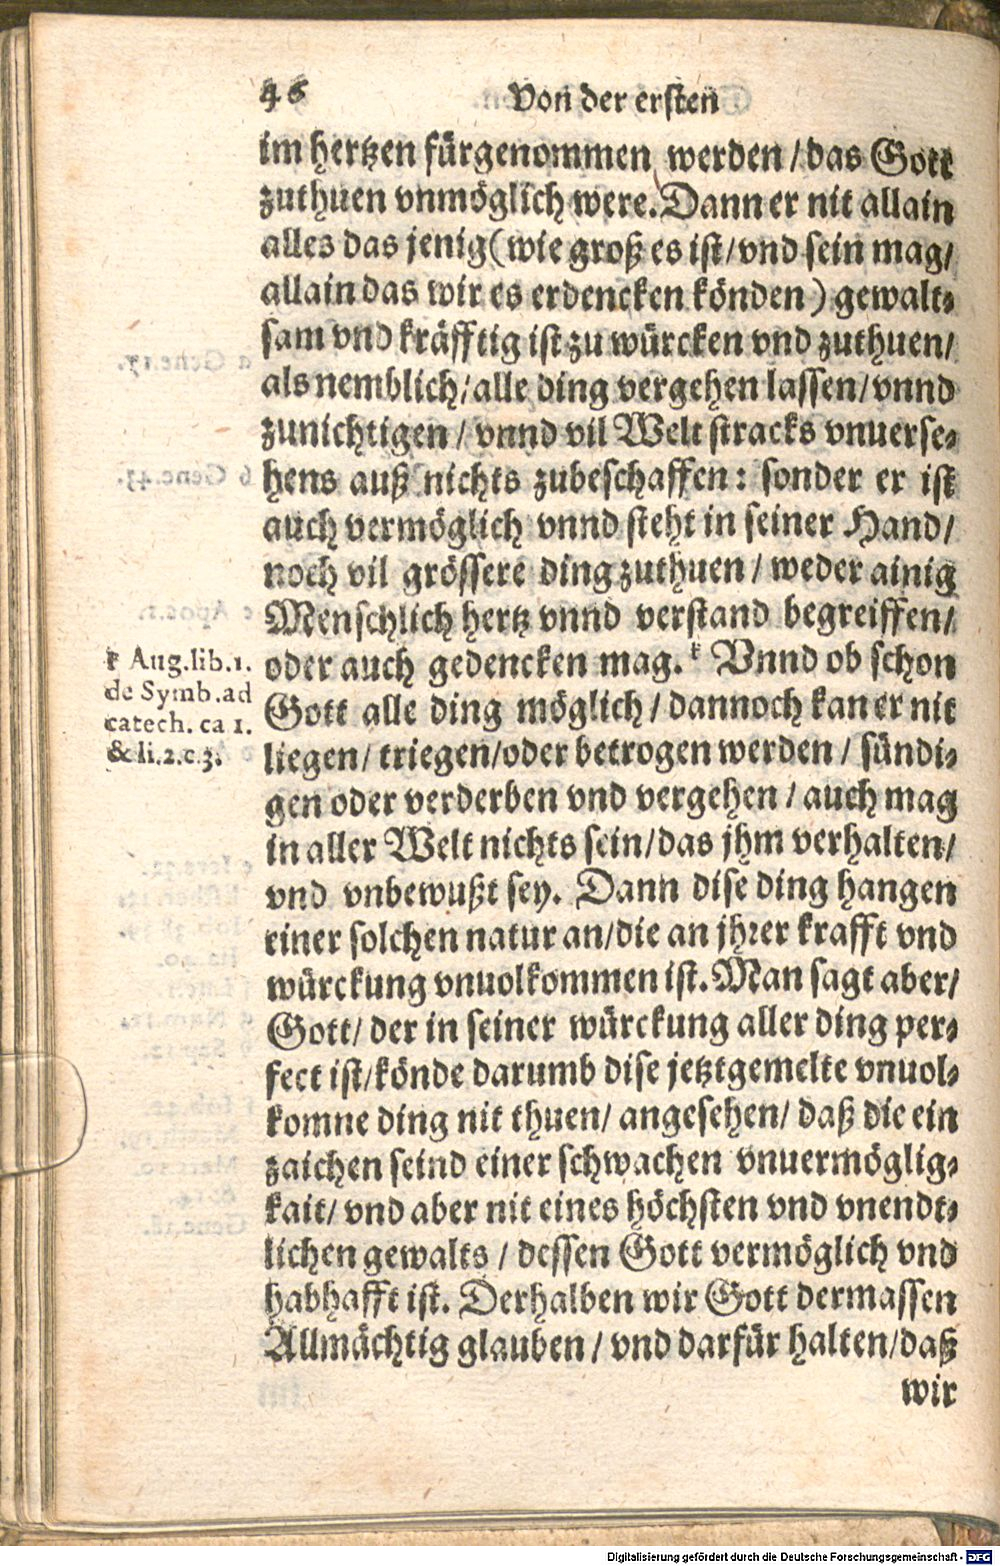 46 Von der ersten
im hertzen fürgenommen werden / das Gott
zuthuen vnmöglich were. Dann er nit allain
alles das jenig (wie groß es ist / vnd sein mag /
allain das wir es erdencken könden) gewalt-
sam vnd kräfftig ist zu würcken vnd zuthuen /
als nemblich / alle ding vergehen lassen / vnnd
zunichtigen / vnnd vil Welt stracks vnuerse-
hens auß nichts zubeschaffen: sonder er ist
auch vermöglich vnnd steht in seiner Hand /
noch vil grössere ding zuthuen / weder ainig
Menschlich hertz vnnd verstand begreiffen /
oder auch gedencken mag. k Vnnd ob schon
Gott alle ding möglich / dannoch kan er nit
liegen / triegen / oder betrogen werden / sündi-
gen oder verderben vnd vergehen / auch mag
in aller Welt nichts sein / das jhm verhalten /
vnd vnbewußt sey. Dann dise ding hangen
einer solchen natur an / die an jhrer krafft vnd
würckung vnuolkommen ist. Man sagt aber /
Gott / der in seiner würckung aller ding per-
fect ist / könde darumb dise jetztgemelte vnuol-
komne ding nit thuen / angesehen / daß die ein
zaichen seind einer schwachen vnuermöglig-
kait / vnd aber nit eines höchsten vnd vnendt-
lichen gewalts / dessen Gott vermöglich vnd
habhafft ist. Derhalben wir Gott dermassen
Allmächtig glauben / vnd darfür halten / daß
wir
k Aug. lib. 1.
de Symb. ad
catech. ca 1.
& li. 2. c. 3.
Digitalisierung gefördert durch die Deutsche Forschungsgemeinschaft - DFG